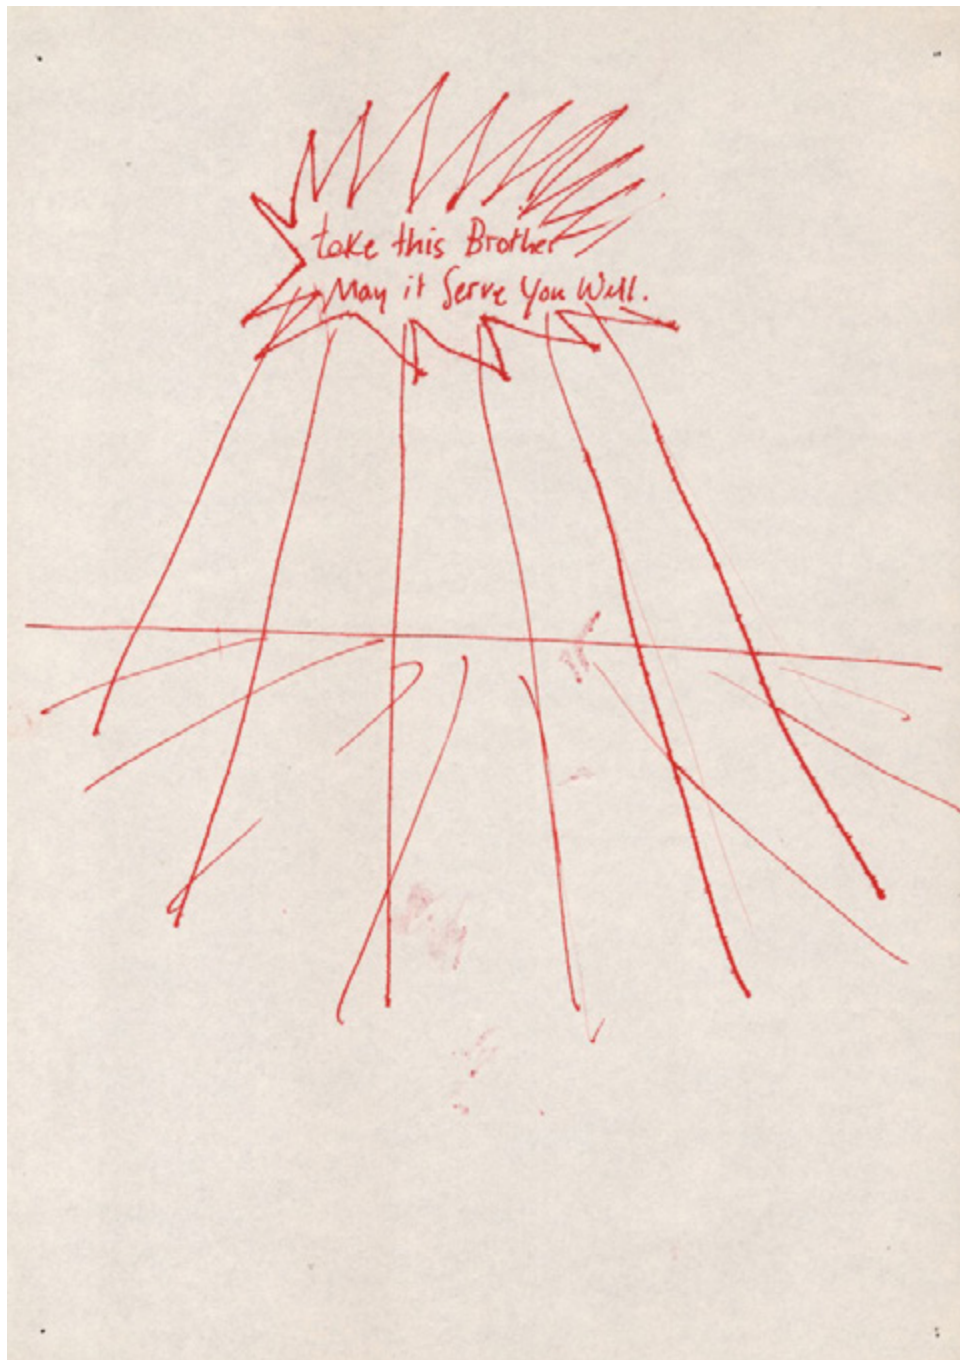 take this Brother
May it Serve You Well.